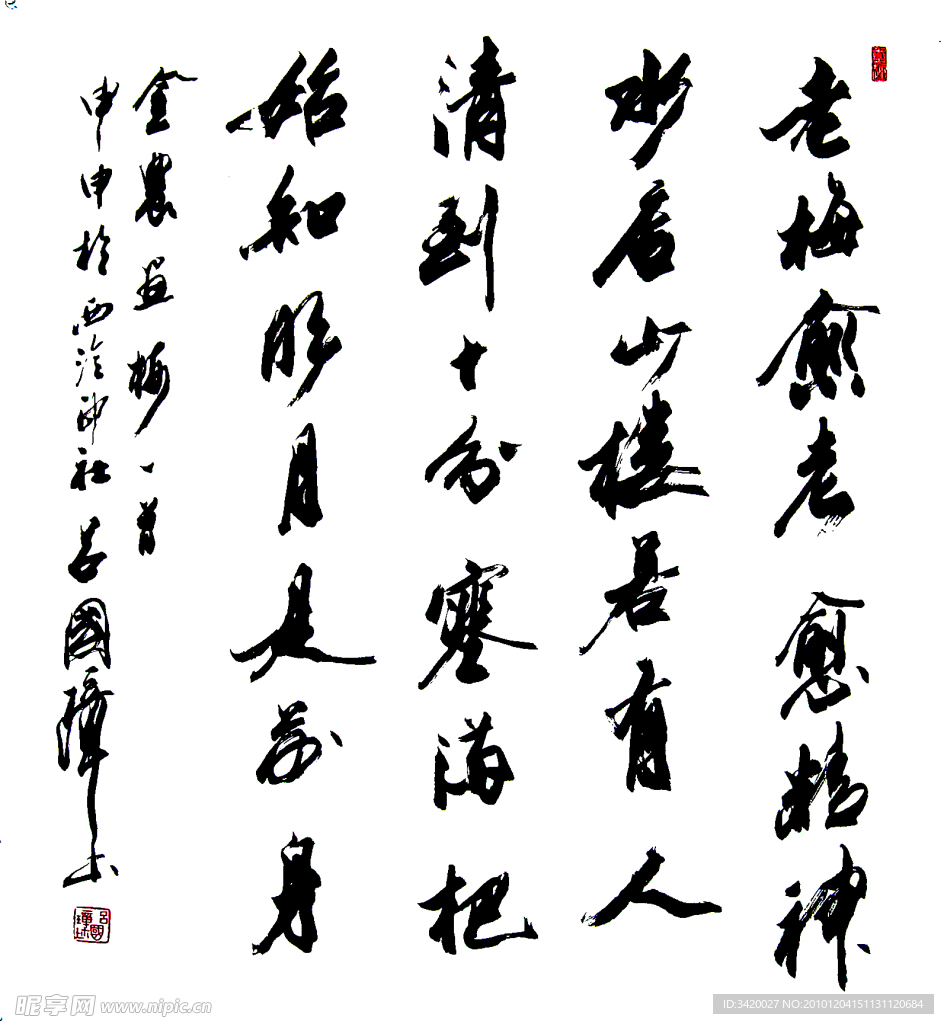 老梅愈老愈精神
水店山楼若有人
清到十分寒满把
始知明月是前身
金農画梅一首
甲申於西泠印社吕國璋书
昵享网 www.nipic.cn
ID:3420027 NO:20101204151131120684